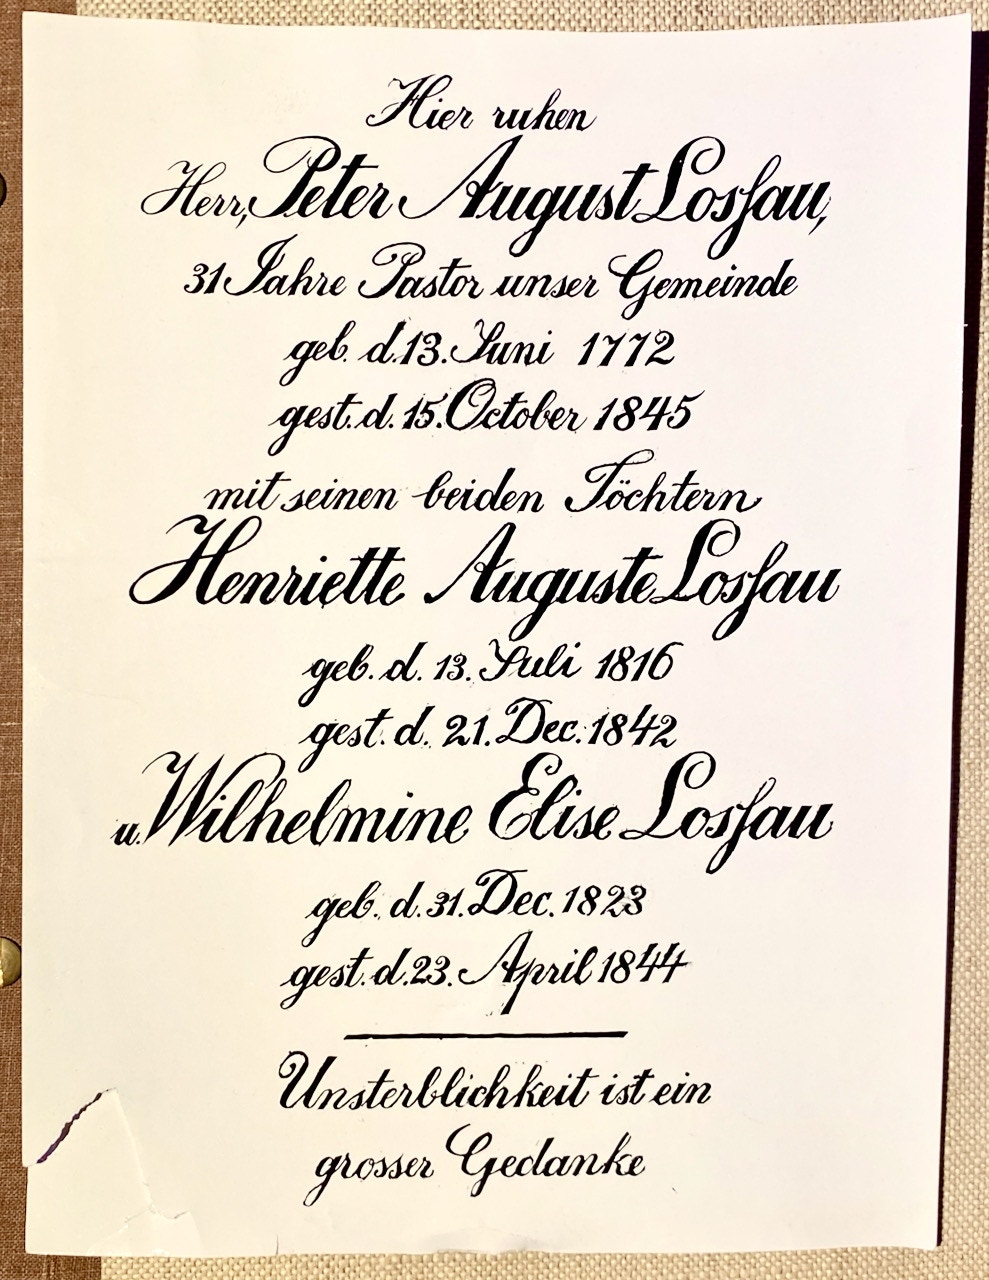 Hier ruhen
Herr, Peter August Losſau,
31 Jahre Pastor unser Gemeinde
geb. d. 13. Juni 1772
gest. d. 15. October 1845
mit seinen beiden Töchtern
Henriette Auguste Losſau
geb. d. 13. Juli 1816
gest. d. 21. Dec. 1842
u. Wilhelmine Elise Losſau
geb. d. 31. Dec. 1823
gest. d. 23. April 1844
Unsterblichkeit ist ein
grosser Gedanke